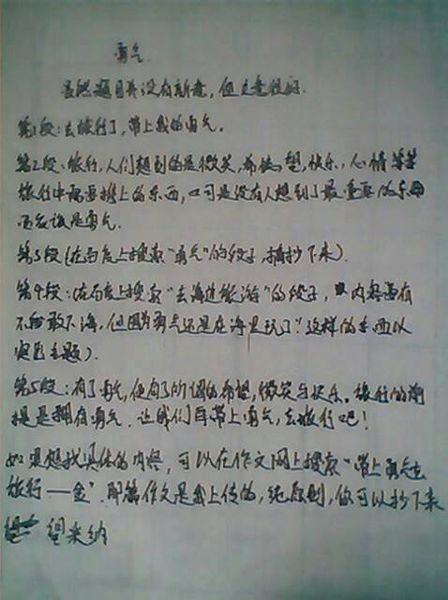 勇气
虽然题目并没有新意,但立意挺好.
第1段:去旅行了,带上我的勇气.
第2段:旅行,人们想到的是微笑,希望,快乐,心情等等
旅行中需要携上的东西,可是没有人想到了最重要的东西
而应该是勇气.
第3段(在百度上搜索“勇气”的段子,摘抄下来).
第4段:(在百度上搜索“去海边旅游”的段子,内容要有
不敢下海,但因为勇气还是在海里玩了”这样的东西以
突出主题).
第5段:有了勇气,便有了所谓的希望,微笑与快乐.旅行的前
提是拥有勇气.让我们带上勇气,去旅行吧!
如果想找具体的内容,可以在作文网上搜索“带上勇气去
旅行——金”.那篇作文是我上传的,纯原创,你可以抄下来
望采纳